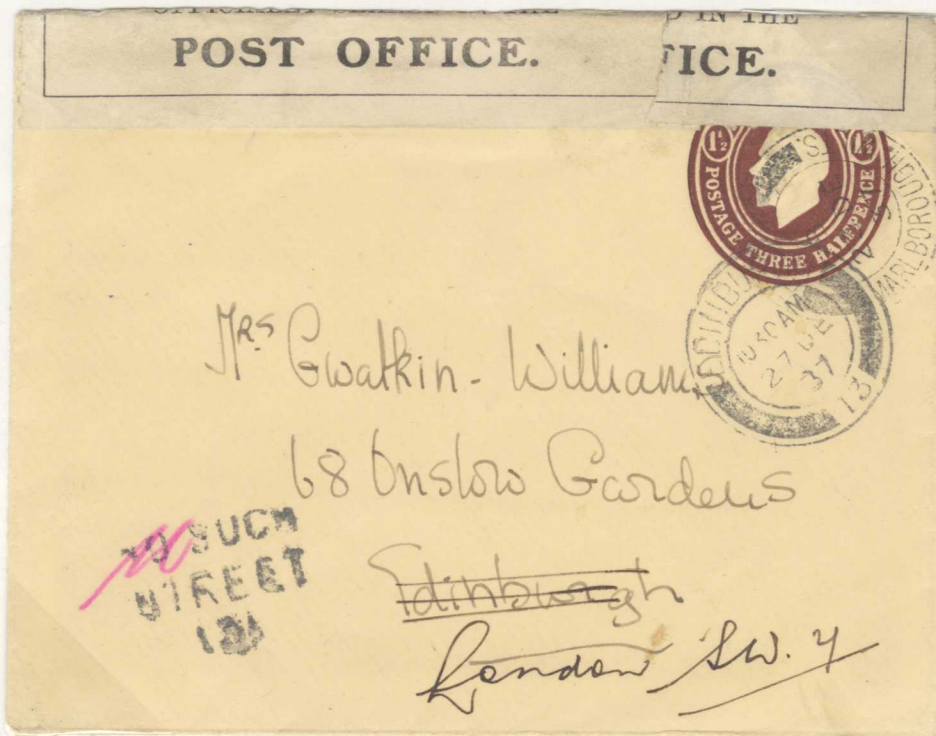 IN THE
POST OFFICE. FICE.
1½ 1½
POSTAGE THREE HALFPENCE
MARLBOROUGH
10 30 AM
27 DE
37
13
Mrs Gwatkin-Williams
68 Onslow Gardens
Edinburgh
London S.W. 7
NO SUCH
STREET